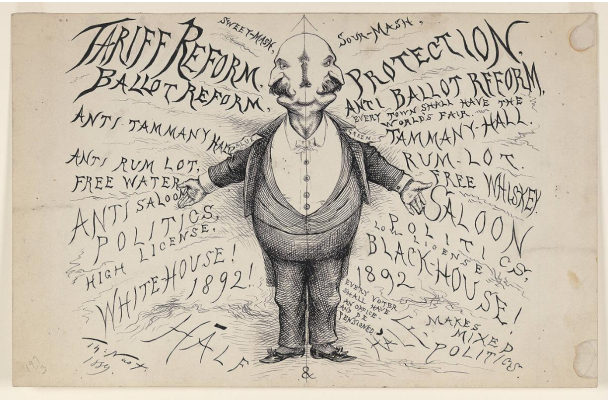 SWEET-MASH,
SOUR-MASH,
TARIFF REFORM,
BALLOT REFORM,
ANTI TAMMANY HALL
ANTI RUM LOT,
FREE WATER
ANTI SALOON
POLITICS,
HIGH LICENSE.
WHITEHOUSE!
1892!
HALF
PROTECTION.
ANTI BALLOT REFORM,
EVERY TOWN SHALL HAVE THE
WORLD'S FAIR.
TAMMANY-HALL.
RUM-LOT.
FREE WHISKEY.
SALOON
POLITICS,
LOW LICENSE
BLACK-HOUSE!
1892
EVERY VOTER
SHALL HAVE
AN OFFICE
AND BE
PENSIONED,
HALF
MAKES
MIXED
POLITICS.
&
Th: Nast
1889.